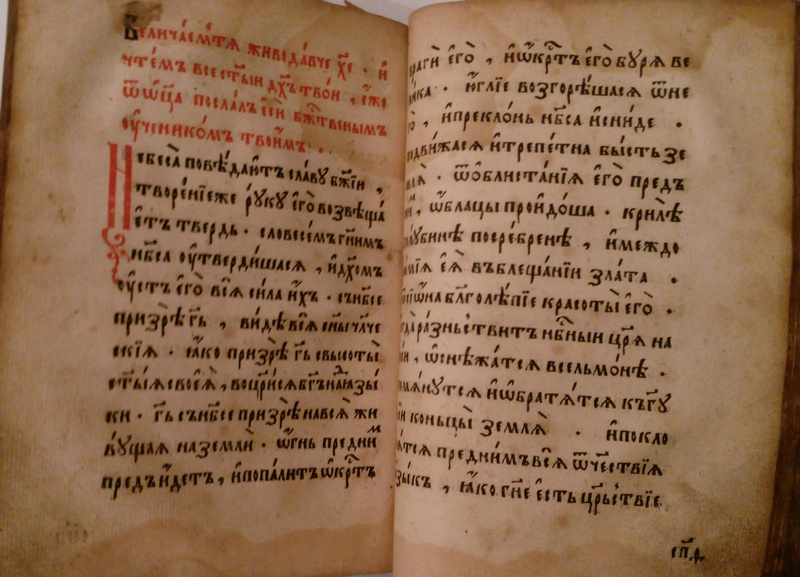 Величаемътѧ живодавче хе҃ · и҆
чтемъ всест҃ыи дх҃ъ твои , е҆го́же
ѿ ѻ҆ц҃а посла́лъ е҆сѝ бж҃ственымъ
ѹ҆ченико́мъ твои҆мъ ·
Небеса̀ повѣ́даютъ сла́вꙋ бж҃їю ,
творе́нїе же рꙋкꙋ̀ е҆гѡ̀ возвѣща́
етъ твердь · словесе́мъ гн҃имъ
нб҃са̀ ѹ҆тверди́шасѧ , и҆ дх҃омъ
ѹ҆стъ е҆гѡ̀ всѧ̀ си́ла и҆́хъ · съ нб҃се
призрѣ̀ гь҃ , ви́дѣ всѧ̀ сн҃ы чл҃че
скїѧ · ꙗ҆́ко призрѣ̀ гь҃ съ высоты̀
ст҃ы́ѧ своеѧ̀ , воцр҃исѧ бг҃ъ над̾ ꙗ҆зы̀
ки · гь҃ съ нб҃се призрѣ̀ на всѧ̀ жи
вꙋ́щаѧ на землѝ · ѻ҆́гнь пред ни́м
предъи́детъ , и҆ попали́тъ ѡ҆́крт҃ъ
врагѝ е҆гѡ̀ , и҆ ѡ҆́крт҃ъ е҆гѡ̀ бꙋ́рѧ ве
лика · и҆ ѹ҆́глїе возгорѣ́шасѧ ѿ не
го̀ , и҆ преклонь нб҃са̀ и҆ сни́де ·
подви́жасѧ и҆ тре́петна бы́сть зе
млѧ̀ · ѿ ѡ҆блиста́нїѧ е҆гѡ̀ предъ
ним , ѡ҆́блацы проидо́ша · крилѣ̀
голꙋбинѣ посре́бренѣ , и҆ междо
рамїѧ еѧ̀ въ блеща́нїи зла́та ·
ѿ сїѡ́на бл҃голѣ́пїе красоты̀ е҆гѡ̀ ·
егда̀ ра́зньствитъ нб҃ныи цр҃ѧ на
неи , ѡ҆снѣжа́тсѧ в селмо́нѣ ·
помѧнꙋ́тсѧ и҆ ѡ҆братѧ́тсѧ къ гд҃ꙋ
вси концы̀ землѧ̀ · и҆ покло
нѧтсѧ пред ни́мъ всѧ̀ ѻ҆те́чествїѧ
ꙗзы́къ , ꙗ҆́ко гн҃е е҆́сть цр҃ьствїе